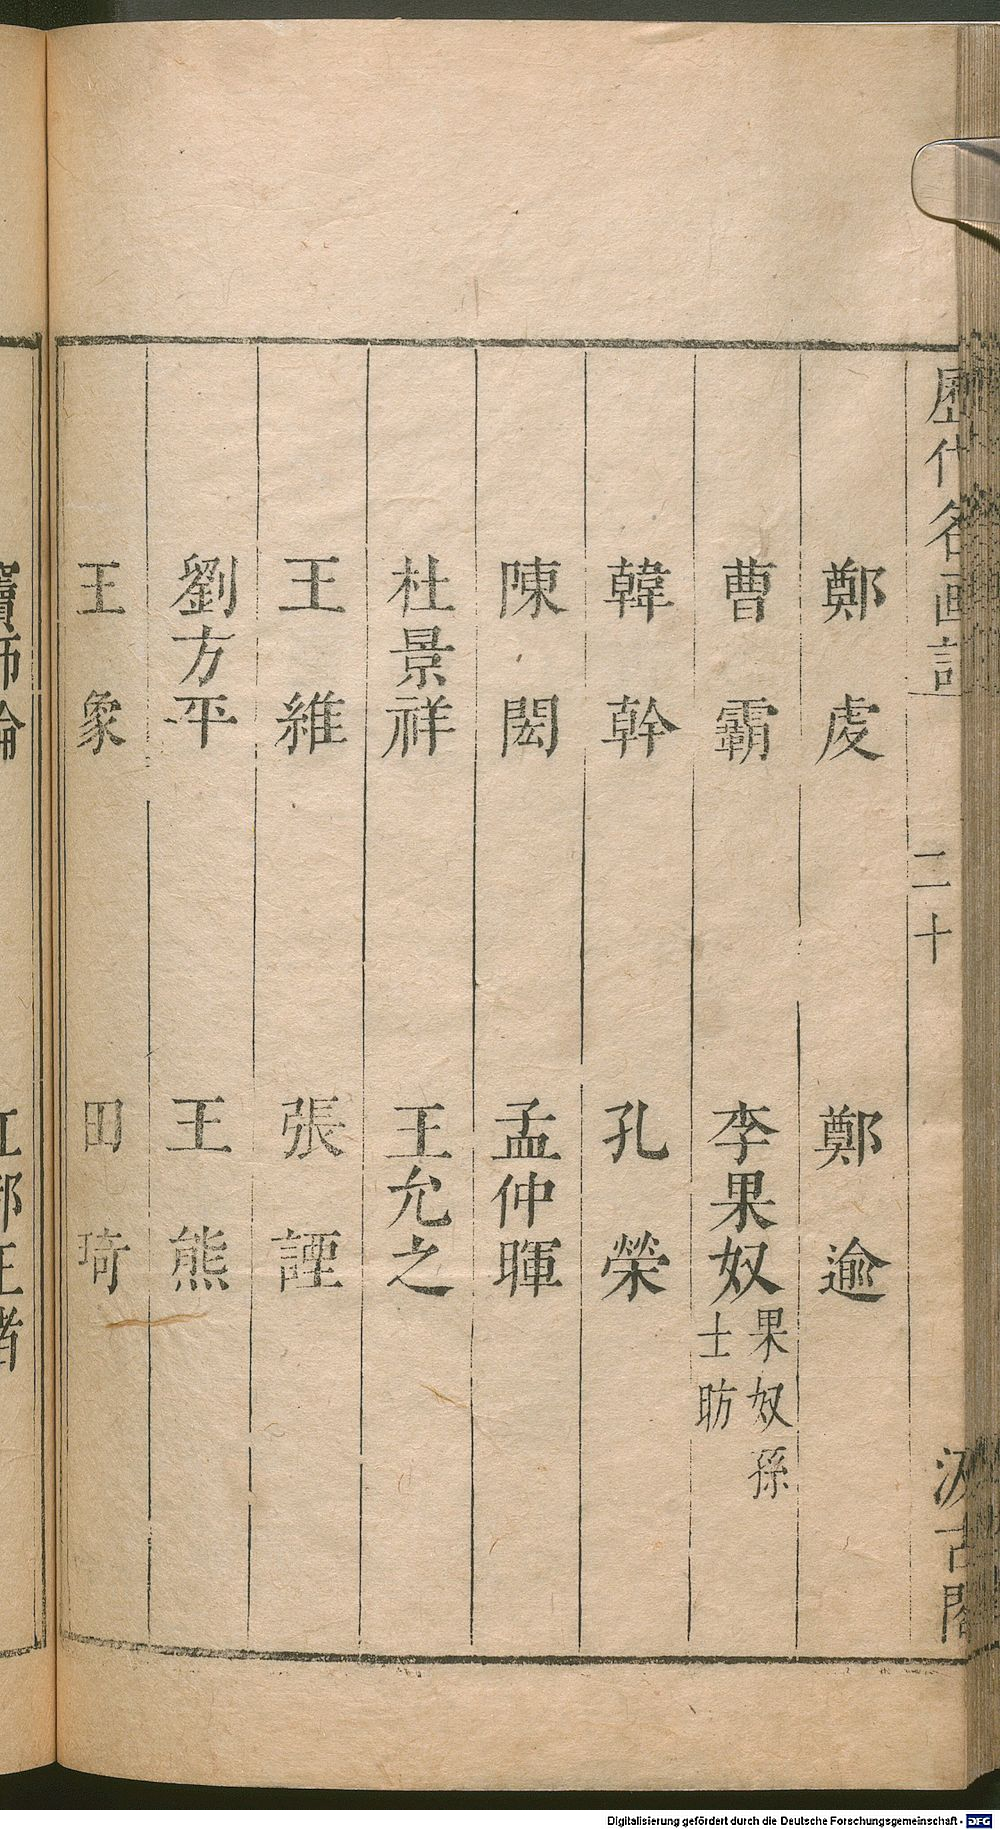 歷代名画記 二十 汲古閣
鄭虔 鄭逾
曹霸 李果奴
果奴孫
士昉
韓幹 孔榮
陳閎 孟仲暉
杜景祥 王允之
王維 張諲
劉方平 王熊
王象 田琦
Digitalisierung gefördert durch die Deutsche Forschungsgemeinschaft - DFG